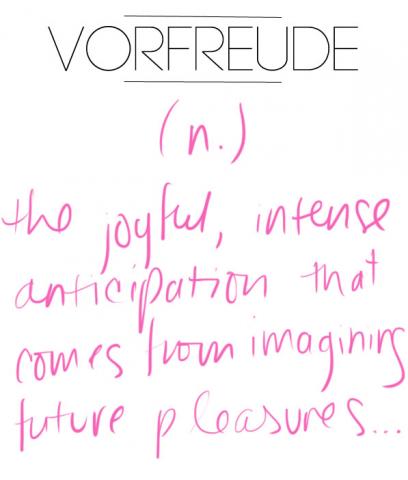 VORFREUDE
(n.)
the joyful, intense
anticipation that
comes from imagining
future pleasures...